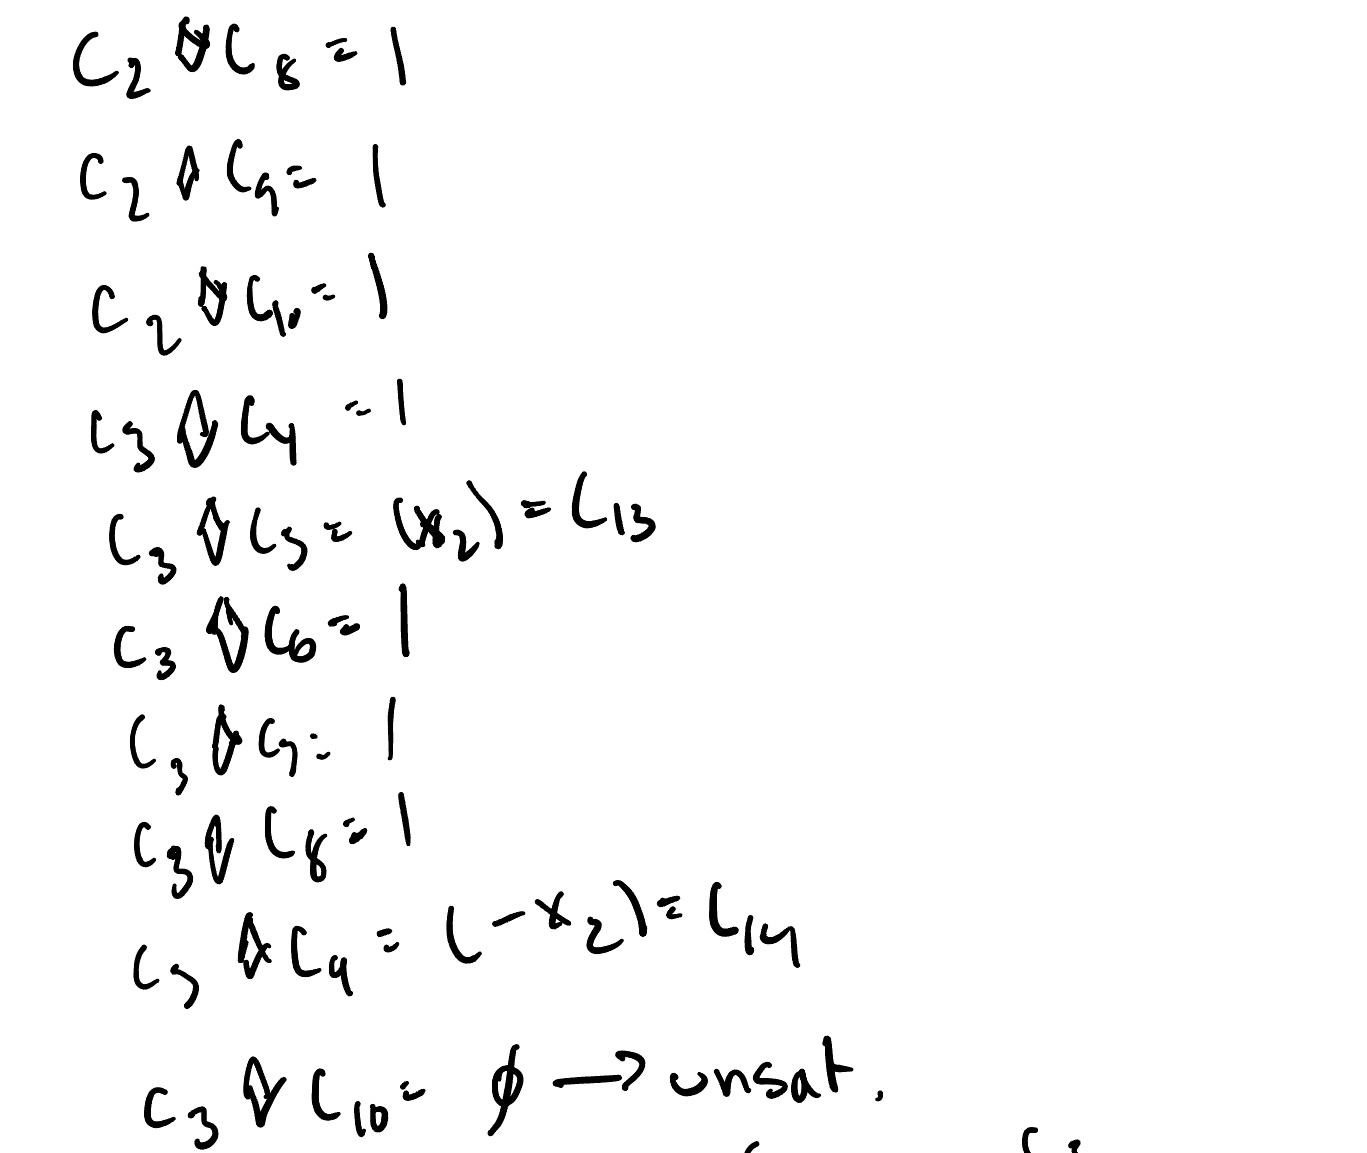 C₂ ◊ C₈ = 1
C₂ ◊ C₉ = 1
C₂ ◊ C₁₀ = 1
C₃ ◊ C₄ = 1
C₃ ◊ C₅ = (x₂) = C₁₃
C₃ ◊ C₆ = 1
C₃ ◊ C₇ = 1
C₃ ◊ C₈ = 1
C₃ ◊ C₉ = (-x₂) = C₁₄
C₃ ◊ C₁₀ = ϕ → unsat.